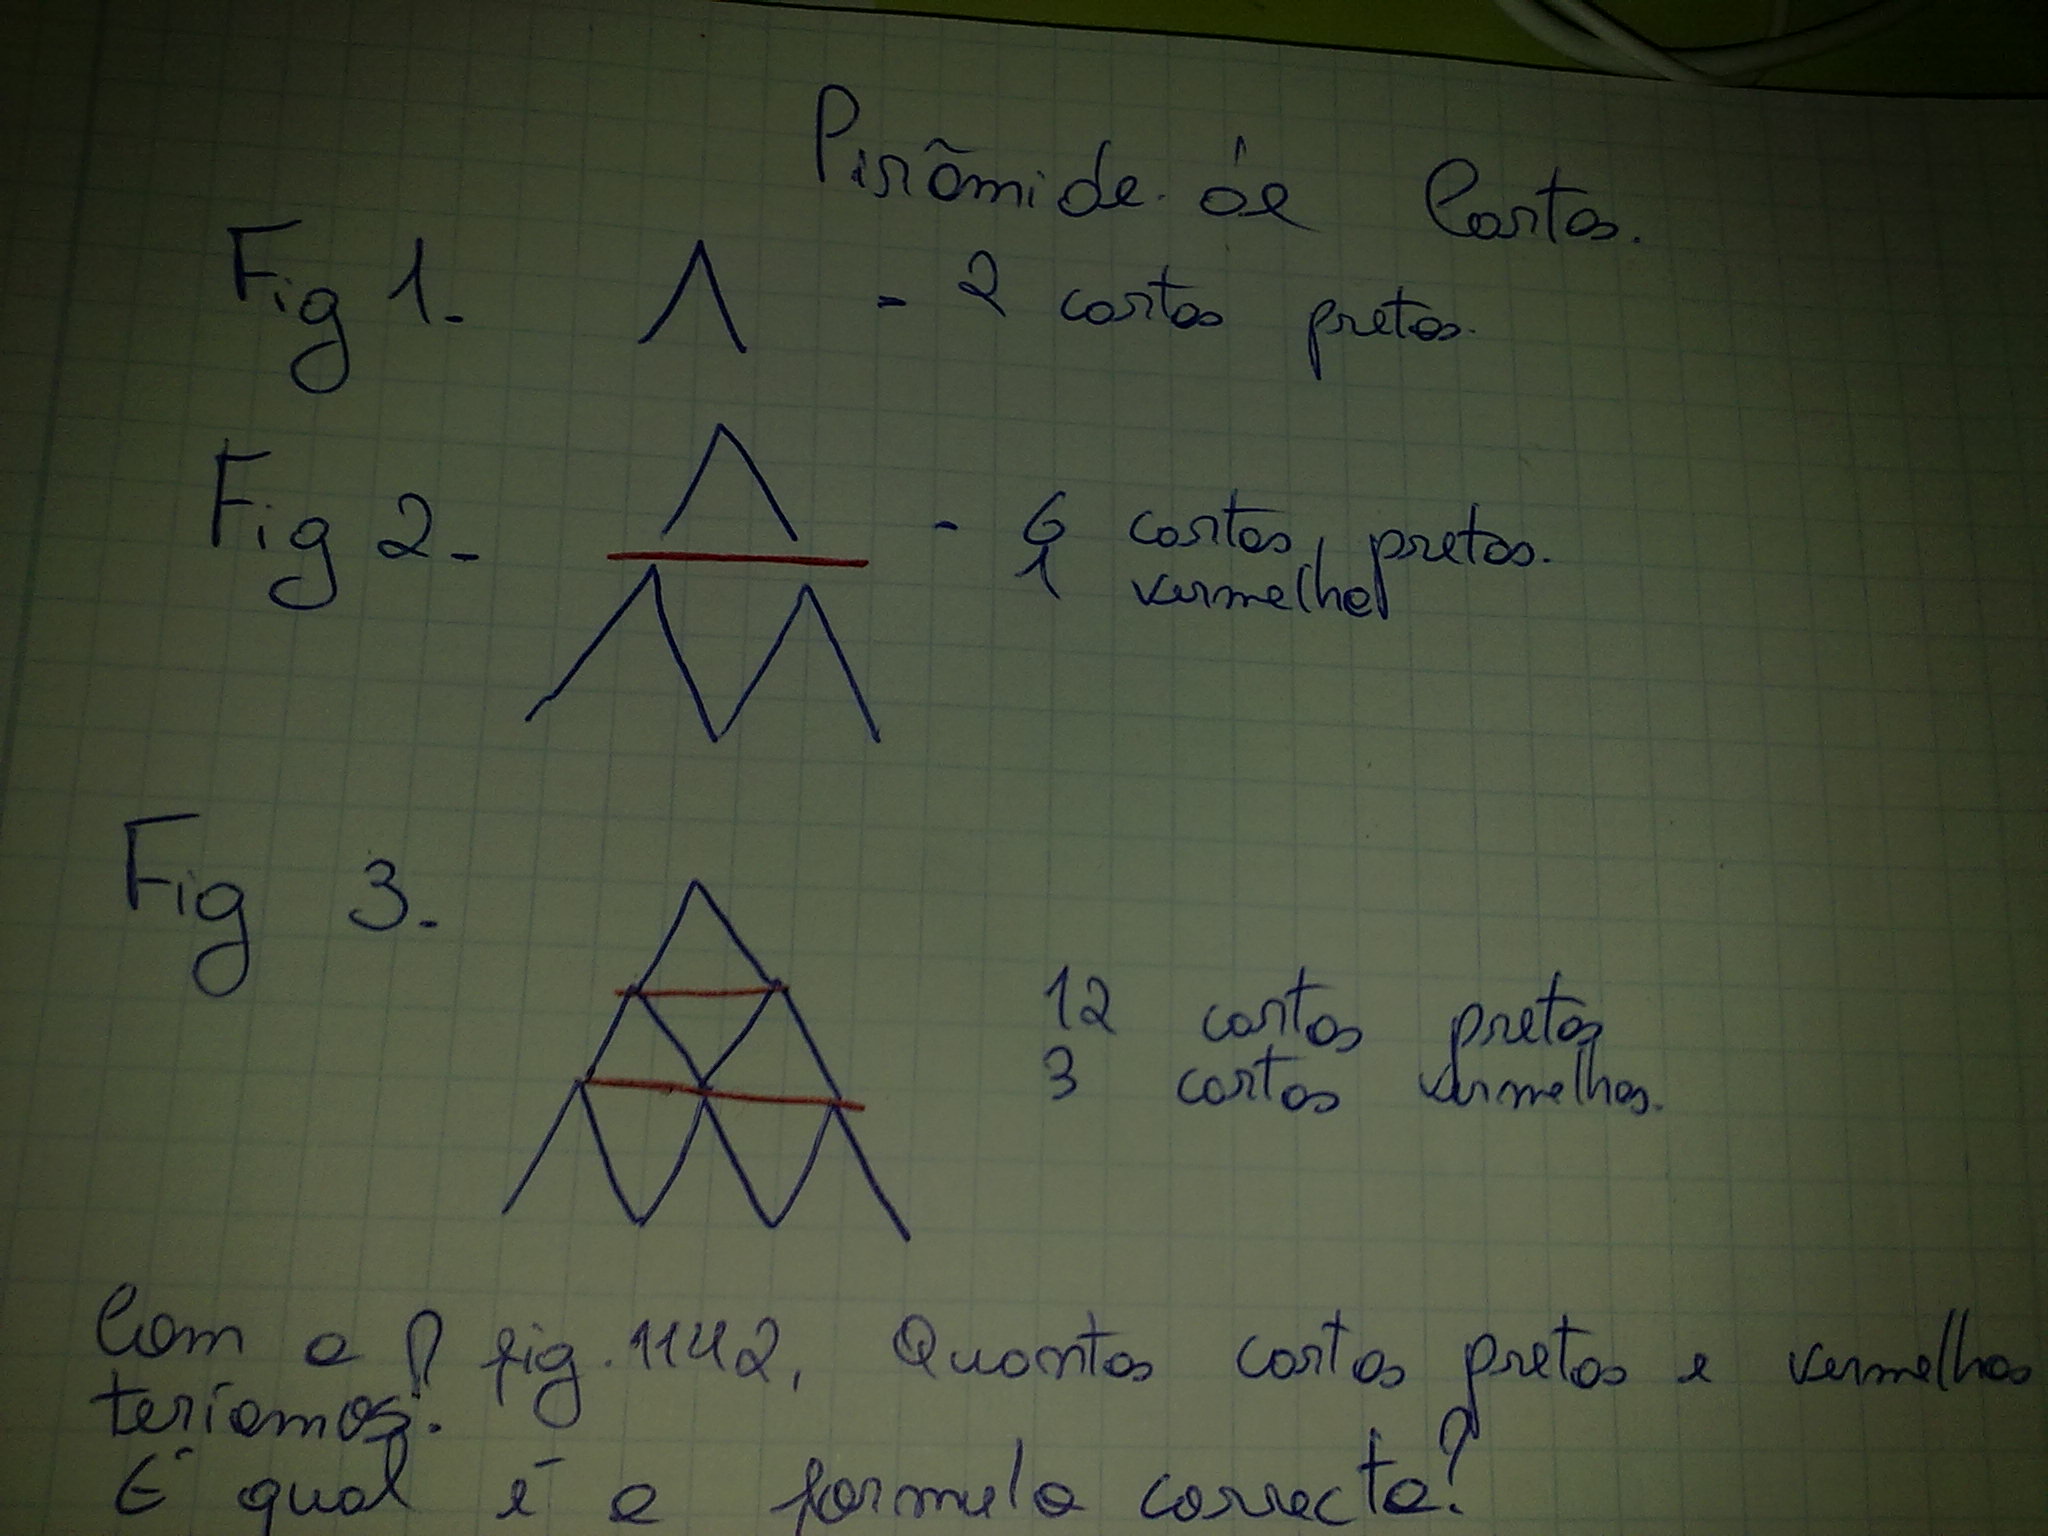 Pirâmide de Cartas.
Fig 1. - 2 cartas pretas.
Fig 2. - 6 cartas, pretas.
1 vermelha
Fig 3.
12 cartas pretas
3 cartas vermelhas.
Com a fig. 1142, Quantas cartas pretas e vermelhas
teríamos.
E qual é a formula correcta?